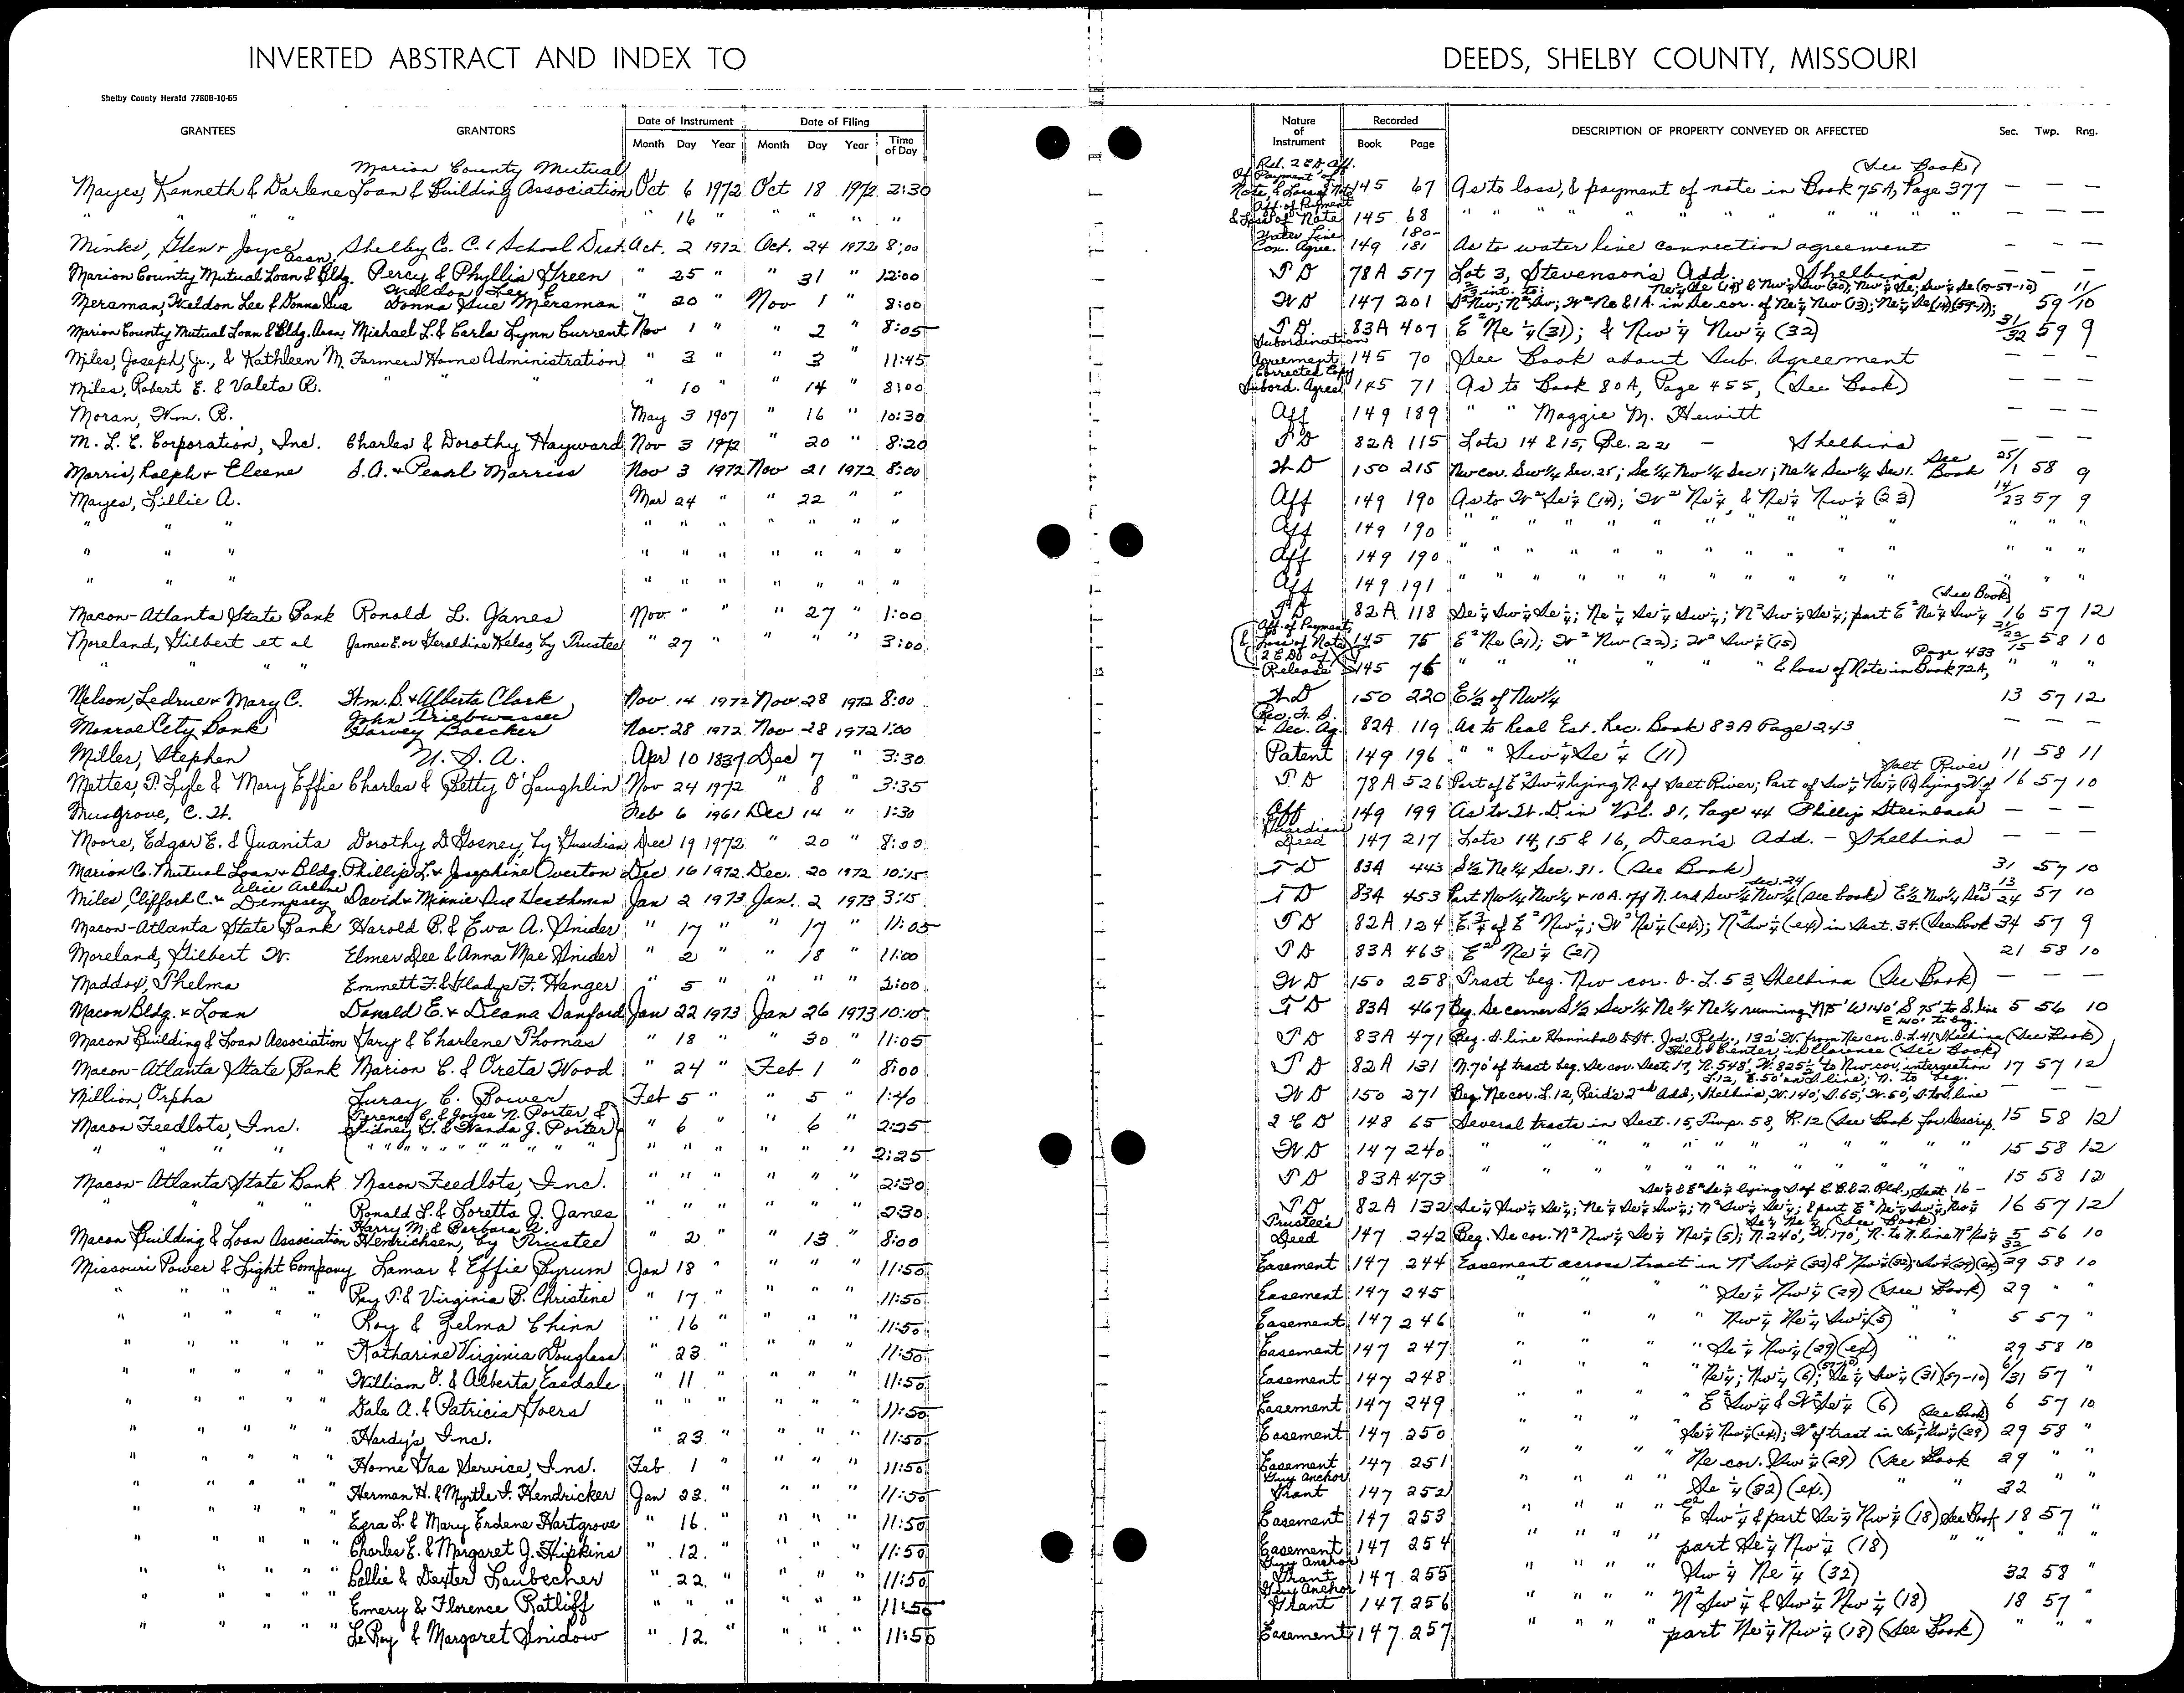 INVERTED ABSTRACT AND INDEX TO DEEDS, SHELBY COUNTY, MISSOURI
Shelby County Herald 7760B-10-65
GRANTEES GRANTORS Date of Instrument Date of Filing Nature of Instrument Recorded DESCRIPTION OF PROPERTY CONVEYED OR AFFECTED Sec. Twp. Rng.
Month Day Year Month Day Year Time of Day Book Page
Marion County Mutual Rel. 2 E D Aff. (See Book)
Mayes, Kenneth & Darlene Loan & Building Association Oct 6 1972 Oct 18 1972 2:30 Of Payment of Note & Loss of Not 145 67 As to loss, & payment of note in Book 75A, Page 377 — — —
" " " " 16 " " " " " Aff. of Payment & Loss of Note 145 68 " " " " " " " " " " — — —
Minks, Glen & Joyce Shelby Co. C. 1 School Dist. Oct. 2 1972 Oct. 24 1972 8:00 Water Line Con. Agree. 149 180-181 As to water line connection agreement — — —
Marion County Mutual Loan & Bldg. Assn. Percy & Phyllis Green " 25 " " 31 " 12:00 T D 78A 517 Lot 3, Stevenson's Add. Shelbina — — —
Mersman, Weldon Lee & Donna Sue Weldon Lee & Donna Sue Mersman " 20 " Nov 1 " 8:00 W D 147 201 59
Marion County Mutual Loan & Bldg. Assn. Michael L. & Carla Lynn Current Nov 1 " " 2 " 8:05 T D. 83A 407 E² Ne ¼ (31); & Nw ¼ Nw ¼ (32) 31/32 59 9
Miles, Joseph, Jr., & Kathleen M. Farmers Home Administration " 3 " " 3 " 11:45 Subordination Agreement 145 70 See Book about Sub. Agreement — — —
Miles, Robert E. & Valeta R. " " " " 10 " " 14 " 8:00 Corrected Copy Subord. Agree 145 71 As to Book 80A, Page 455, (See Book) — — —
Moran, Wm. R. May 3 1907 " 16 " 10:30 Aff 149 189 " " Maggie M. Hewitt — — —
M. L. C. Corporation, Inc. Charles & Dorothy Hayward Nov 3 1972 " 20 " 8:20 T D 82A 115 Lots 14 & 15, Bl. 22 - Shelbina — — —
Morris, Ralph & Eleene S. A. & Pearl Morriss Nov 3 1972 Nov 21 1972 8:00 W D 150 215 Nw cor. Sw¼ Sec. 25; Se ¼ Nw ¼ Sec 1; Ne ¼ Sw ¼ Sec 1. See Book 25/1 58 9
Mayes, Lillie A. Mar 24 " " 22 " " Aff 149 190 As to W² Se ¼ (14); W² Ne ¼ & Ne ¼ Nw ¼ (23) 14/23 57 9
" " " " " " " " " " Aff 149 190 " " " " " " " " " " " "
" " " " " " " " " " Aff 149 190 " " " " " " " " " " " "
" " " " " " " " " " Aff 149 191 " " " " " " " " " " " "
(See Book)
Macon-Atlanta State Bank Ronald L. Janes Nov. " " " 27 " 1:00 T D 82A 118 Se ¼ Sw ¼ Se ¼; Ne ¼ Se ¼ Sw ¼; N² Sw ¼ Se ¼; part E² Ne ¼ Sw ¼ 16 57 12
Moreland, Gilbert et al James E. or Geraldine Kelso, by Trustee " 27 " " " " 3:00 Aff. of Payment & Loss of Note 145 75 E² Ne (21); W² Nw (22); W² Sw ¼ (15) 21/22/15 58 10
" " " " 2 E D of Release 145 76 " " " " " & loss of Note in Book 72A, Page 433 " " "
Nelson, Ledrue & Mary C. Wm. B. & Alberta Clark Nov 14 1972 Nov 28 1972 8:00 W D 150 220 E½ of Nw¼ 13 57 12
Monroe City Bank John Triebwasser Harvey Baecker Nov. 28 1972 Nov 28 1972 1:00 82A 119 As to Real Est. Rec. Book 83A Page 243 — — —
Miller, Stephen U. S. A. Apr 10 1837 Dec 7 " 3:30 Patent 149 196 " " Sw ¼ Se ¼ (11) 11 58 11
Mettes, P. Lyle & Mary Effie Charles & Betty O'Laughlin Nov 24 1972 " 8 " 3:35 T D 78A 526 Part of E² Sw ¼ lying N. of Salt River; Part of Sw ¼ Ne ¼ (16) lying N. of Salt River 16 57 10
Musgrove, C. W. Feb 6 1961 Dec 14 " 1:30 Aff 149 199 As to W. D. in Vol. 81, Page 44 Phillip Steinbach — — —
Moore, Edgar E. & Juanita Dorothy D. Gosney, by Guardian Dec 19 1972 " 20 " 8:00 Guardian's Deed 147 217 Lots 14, 15 & 16, Dean's Add. - Shelbina — — —
Marion C. Mutual Loan & Bldg. Phillip L. & Josephine Overton Dec 16 1972 Dec. 20 1972 10:15 T D 83A 443 S½ Ne ¼ Sec. 31. (See Book) 31 57 10
Miles, Clifford C. & Alice Arlene Dempsey David & Minnie Sue Heathman Jan 2 1973 Jan. 2 1973 3:15 T D 83A 453 Part Nw ¼ Nw ¼ & 10 A. off N. end Sw ¼ Nw ¼ Sec. 24 (see book) E½ Nw ¼ Sec 13 13/24 57 10
Macon-Atlanta State Bank Harold B. & Eva A. Snider " 17 " " 17 " 11:05 T D 82A 124 E. ¾ of E² Nw ¼; W² Ne ¼ (ex.); N² Sw ¼ (ex) in Sect. 34. (See Book 34 57 9
Moreland, Gilbert W. Elmer Dee & Anna Mae Snider " 2 " " 18 " 11:00 T D 83A 463 E² Ne ¼ (21) 21 58 10
Maddox, Thelma Emmett F. & Gladys F. Wanger " 5 " " " " 2:00 W D 150 258 Tract beg. Nw cor. O. L. 53, Shelbina (See Book) — — —
Macon Bldg. & Loan Donald E. & Deana Sanford Jan 22 1973 Jan 26 1973 10:15 T D 83A 467 Beg. Se corner S½ Sw ¼ Ne ¼ Ne ¼ running N 75' W 140' S 75' to S. line E 140' to beg. 5 56 10
Macon Building & Loan Association Gary & Charlene Thomas " 18 " " 30 " 11:05 T D 83A 471 Beg. S. line Hannibal & St. Jos. Rd., 132' W. from Ne cor. O. L. 41, Shelbina (See Book)
Macon-Atlanta State Bank Marion C. & Oreta Wood " 24 " Feb 1 " 8:00 T D 82A 131 N. 70' of tract beg. Se cor. Sect. 17, N. 548', W. 825½' to Nw cor. intersection Hill & Center, in Clarence (See Book) 17 57 12
Million, Orpha Luray C. Bower Feb 5 " " 5 " 1:40 W D 150 271 Beg. Ne cor. L. 12, Reid's 2nd Add; Shelbina, W. 140', S. 65', W. 50', S. to S. line L. 12, E. 50' on S. line; N. to beg. — — —
Macon Feedlots, Inc. Terence C. & Joyce N. Porter & Sidney G. & Wanda J. Porter " 6 " " 6 " 2:25 2 E D 148 65 Several tracts in Sect. 15, Twp. 58, R. 12 (See Book for Descrip. 15 58 12
" " " " " " " " " " " " " 2:25 W D 147 240 " " " " " " " " " 15 58 12
Macon-Atlanta State Bank Macon Feedlots, Inc. " " " " " " 2:30 T D 83A 473 " " " " " " " " " 15 58 12
" " " " Ronald L. & Loretta J. Janes " " " " " " 2:30 T D 82A 132 16 57 12
Macon Building & Loan Association Harry M. & Barbara A. Hendrichsen, by Trustee " 2 " " 13 " 8:00 Trustee's Deed 147 242 Beg. Se cor. N² Nw ¼ Se ¼ Ne ¼ (5); N. 240', W. 170', N. to N. line 5 56 10
Missouri Power & Light Company Lamar & Effie Byrum Jan 18 " " " " 11:50 Easement 147 244 Easement across tract in N² Sw ¼ (32) & Nw ¼ (32); Sw ¼ (29) (ex) 32/29 58 10
" " " " Ray T. & Virginia B. Christine " 17 " " " " 11:50 Easement 147 245 " " " Se ¼ Nw ¼ (29) (See Book) 29 " "
" " " " Roy & Zelma Chinn " 16 " " " " 11:50 Easement 147 246 " " " Nw ¼ Ne ¼ Sw ¼ (5) " " 5 57 "
" " " " Katharine Virginia Douglass " 23 " " " " 11:50 Easement 147 247 " " " Se ¼ Nw ¼ (29) (ex) " " 29 58 10
" " " " William O. & Alberta Easdale " 11 " " " " 11:50 Easement 147 248 " " " Ne ¼; Nw ¼ (6); (57-10) Se ¼ Sw ¼ (31) (57-10) 6/31 57 "
" " " " Dale A. & Patricia Goers " " " " " " 11:50 Easement 147 249 " " " E² Sw ¼ & W² Se ¼ (6) 6 57 10
" " " " Hardy's Inc. " 23 " " " " 11:50 Easement 147 250 " " " Se ¼ Nw ¼ (ex); W² of tract in Se ¼ Nw ¼ (29) (See Book) 29 58 "
" " " " Home Gas Service, Inc. Feb. 1 " " " " 11:50 Easement 147 251 " " " Ne cor. Sw ¼ (29) (See Book 29 " "
" " " " Herman H. & Myrtle I. Hendricker Jan 23 " " " " 11:50 Guy Anchor Grant 147 252 " " " Se ¼ (32) (ex.) " " 32 " "
" " " " Ezra L. & Mary Erdene Hartgrove " 16. " " " " 11:50 Easement 147 253 " " " " E² Sw ¼ & part Se ¼ Nw ¼ (18) See Book 18 57 "
" " " " Charles E. & Margaret J. Hipkins " 12. " " " " 11:50 Easement 147 254 " " " " part Se ¼ Nw ¼ (18) " " "
" " " " Callie & Dexter Laubscher " 22. " " " " 11:50 Guy Anchor Grant 147 255 " " " " Sw ¼ Ne ¼ (32) 32 58 "
" " " " Emery & Florence Ratliff " " " " " " 11:50 Guy Anchor Grant 147 256 " " " " N² Sw ¼ & Sw ¼ Nw ¼ (18) 18 57 "
" " " " LeRoy & Margaret Snidow " 12. " " " " 11:50 Easement 147 257 " " " " part Ne ¼ Nw ¼ (18) (See Book) " " "